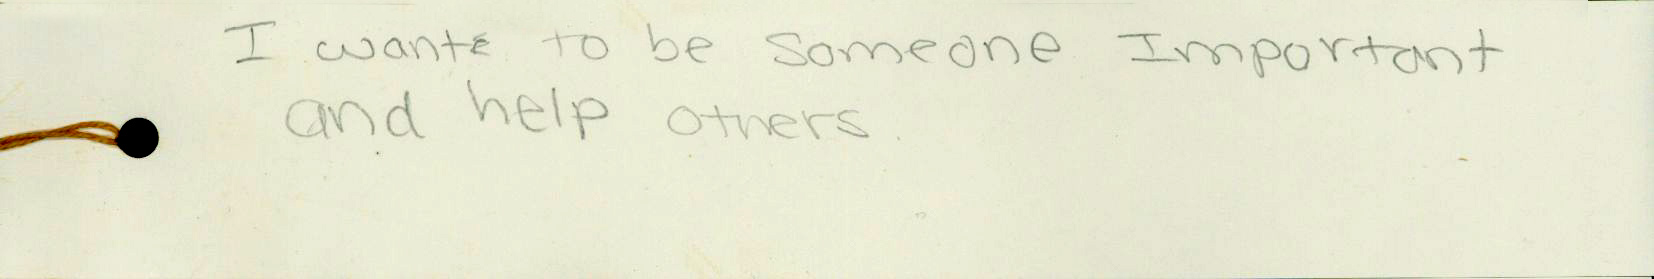 I want to be someone Important
and help others.